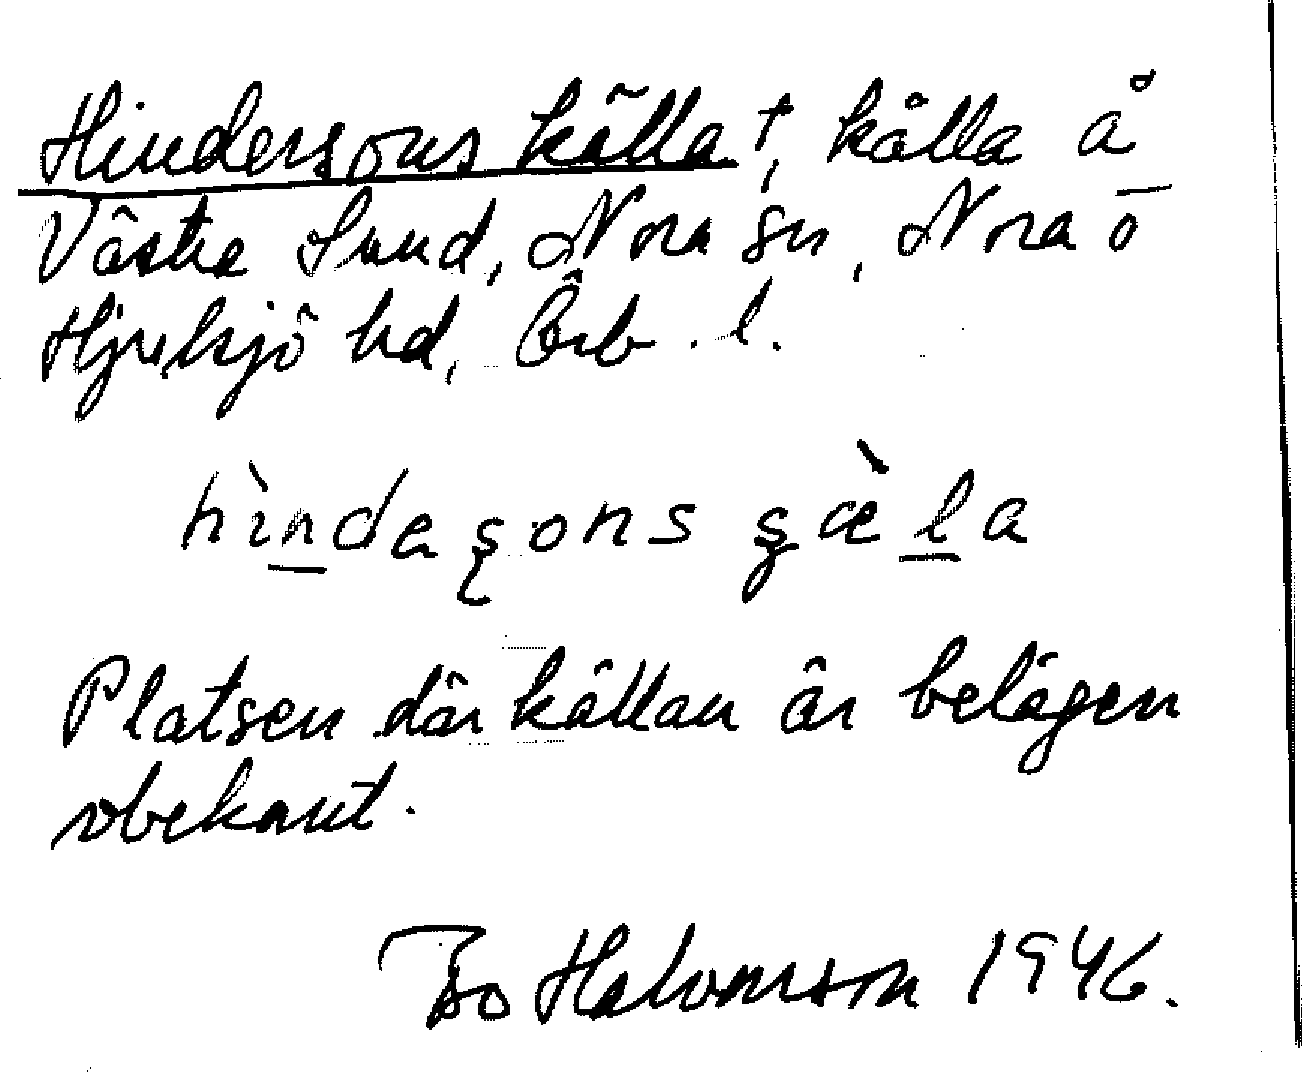 Hindersons källa †, källa å
Västra Sund, Nora sn, Nora o
Hjulsjö hd, Örb. l.
hìndaşons şæ̀la
Platsen där källan är belägen
obekant.
Bo Halvarsson 1946.